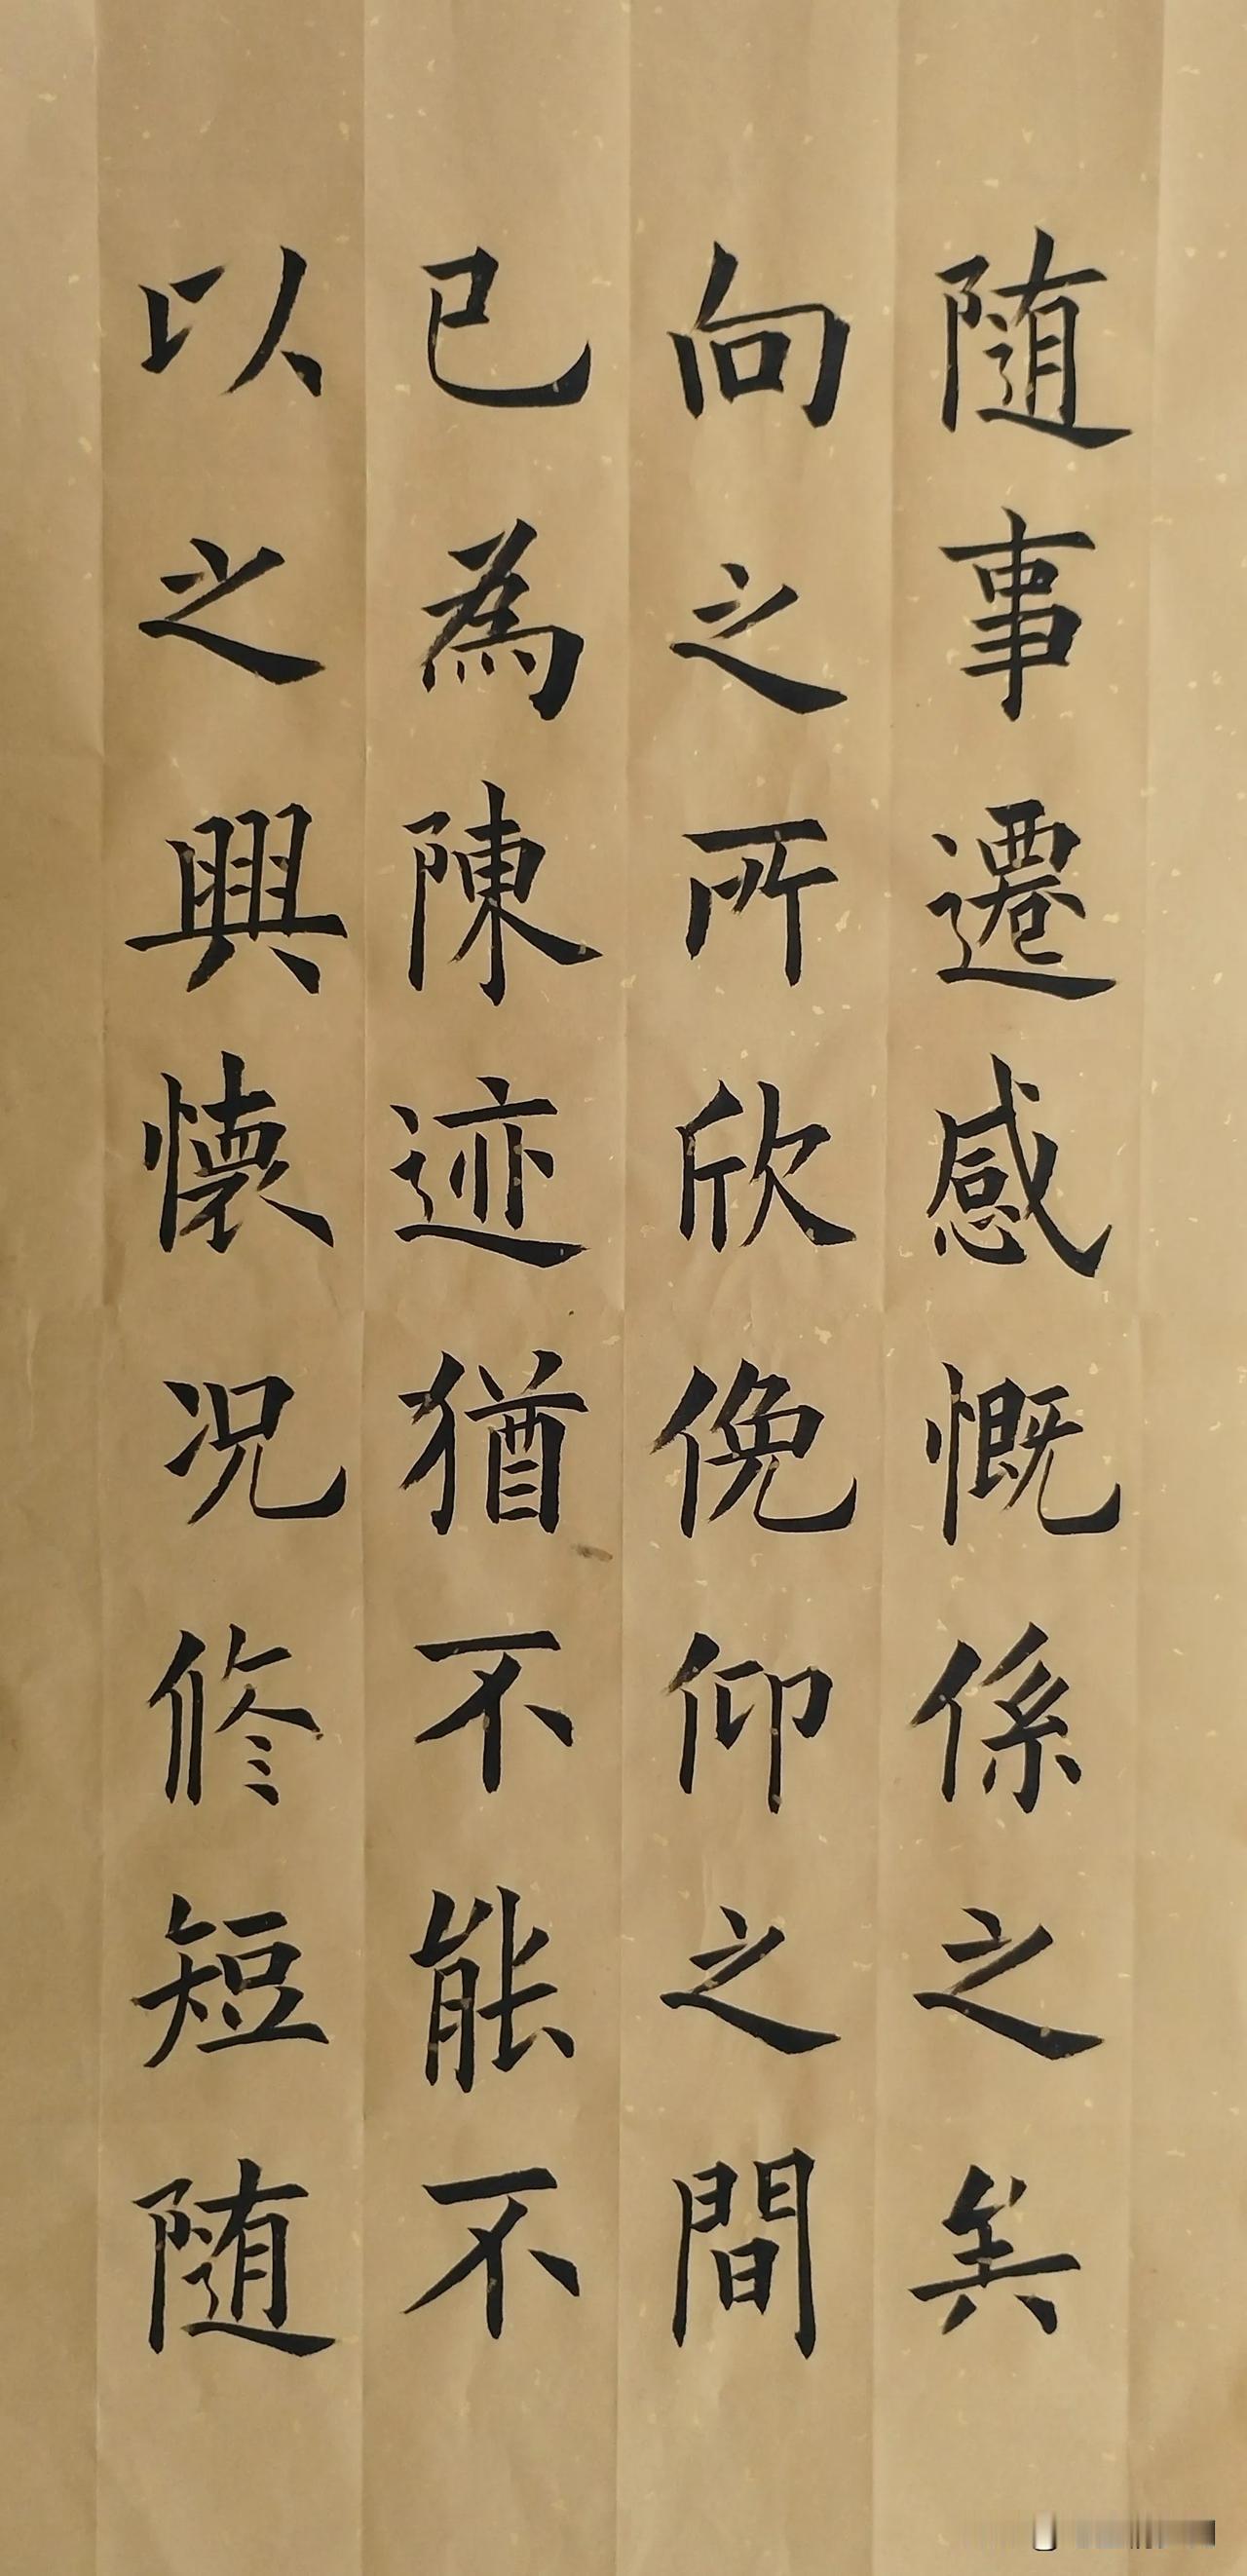 随事遷感慨係之矣
向之所欣俛仰之間
已為陳迹猶不能不
以之興懷況修短随